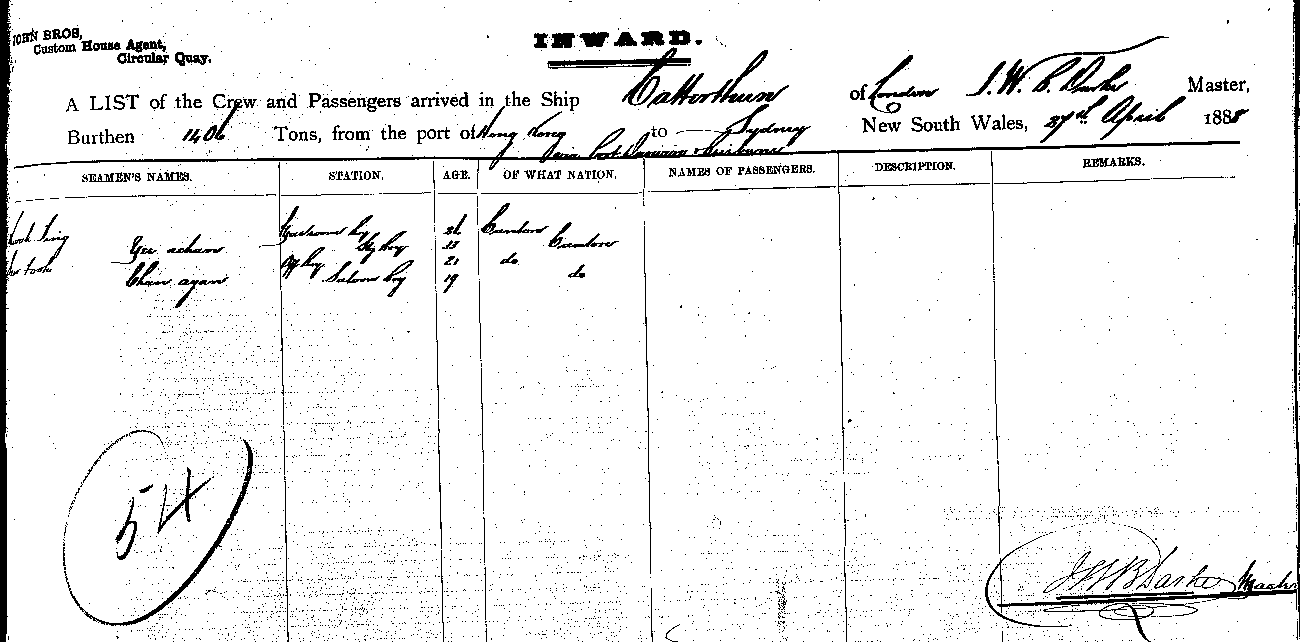 JOHN BROS,
Custom House Agent,
Circular Quay.
INWARD.
A LIST of the Crew and Passengers arrived in the Ship Catterthun of London J. W. B. Darke Master,
Burthen 1406 Tons, from the port of Hong Kong to Sydney New South Wales, 27th April 1888
via Port Darwin & Brisbane
SEAMEN'S NAMES. STATION. AGE. OF WHAT NATION. NAMES OF PASSENGERS. DESCRIPTION. REMARKS.
Sing Gunroom boy Canton
Yee acham boy Canton
boy 21 do
Chan ayan Saloon boy 19 do
54
J W B Darke Master